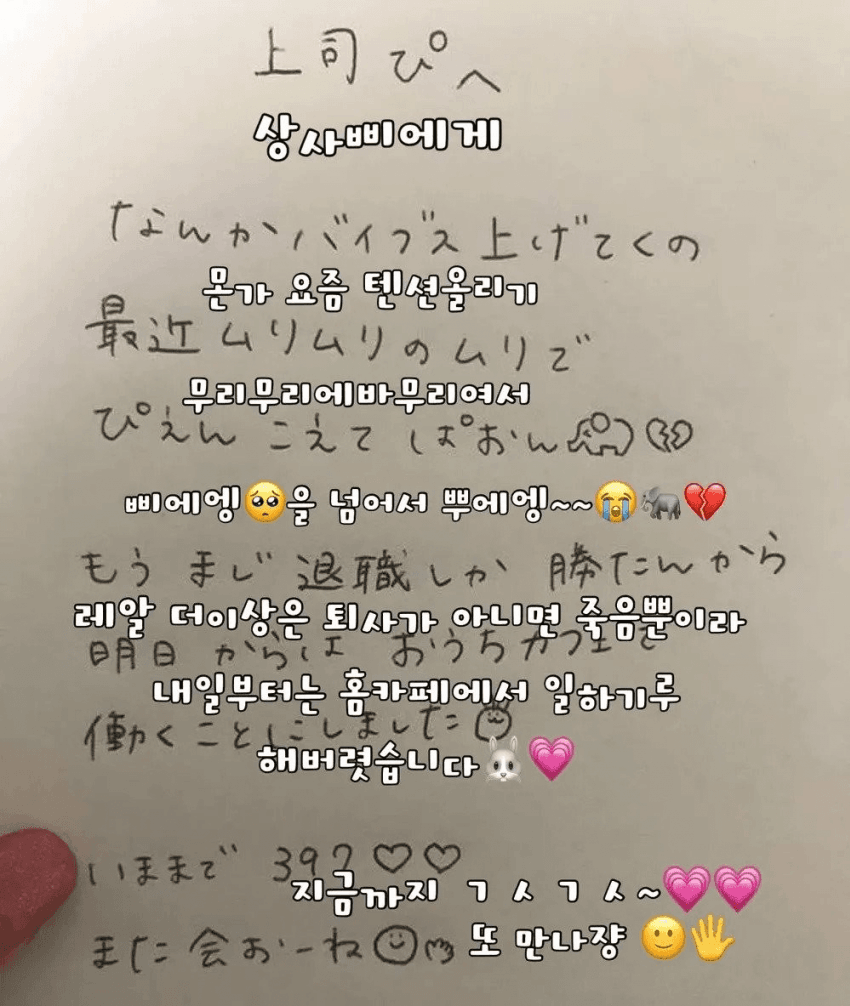 上司ぴへ
상사삐에게
なんかバイブス上げてくの
몬가 요즘 텐션올리기
最近ムリムリのムリで
무리무리에바무리여서
ぴえんこえてぱおん🐘💔
삐에엥🥺을 넘어서 뿌에엥~~😭🐘💔
もうまじ退職しか勝たんから
레알 더이상은 퇴사가 아니면 죽음뿐이라
明日からはおうちカフェで
내일부터는 홈카페에서 일하기루
働くことにしました
해버렷습니다🐰💗
いままで 39?♡♡
지금까지 ㄱㅅㄱㅅ~💗💗
また会おーね☺
또 만나쟝 🙂🖐